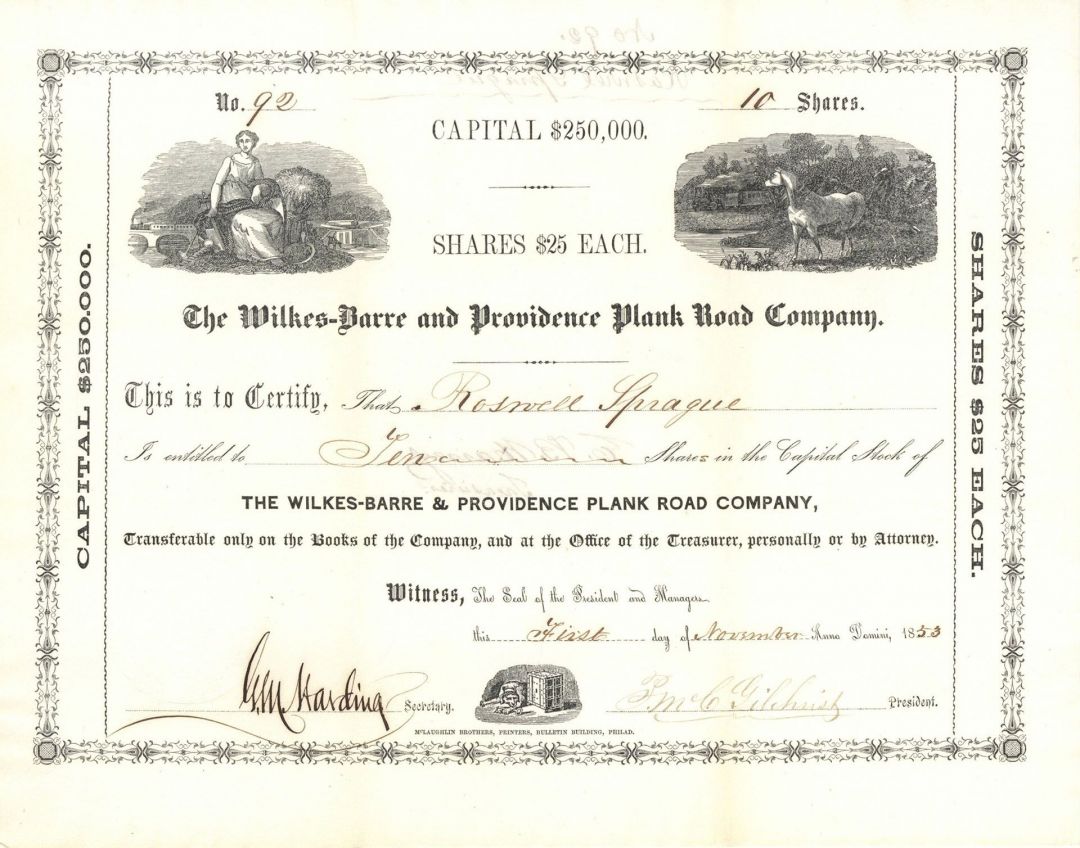 No. 92
10 Shares.
CAPITAL $250,000.
SHARES $25 EACH.
CAPITAL $250.000.
SHARES $25 EACH.
The Wilkes-Barre and Providence Plank Road Company.
This is to Certify, That Roswell Sprague
Is entitled to Ten Shares in the Capital Stock of
THE WILKES-BARRE & PROVIDENCE PLANK ROAD COMPANY,
Transferable only on the Books of the Company, and at the Office of the Treasurer, personally or by Attorney.
Witness, The Seal of the President and Managers
this First day of November Anno Domini, 1853
G. M. Harding Secretary.
P. McC Gilchrist President.
McLAUGHLIN BROTHERS, PRINTERS, BULLETIN BUILDING, PHILAD.